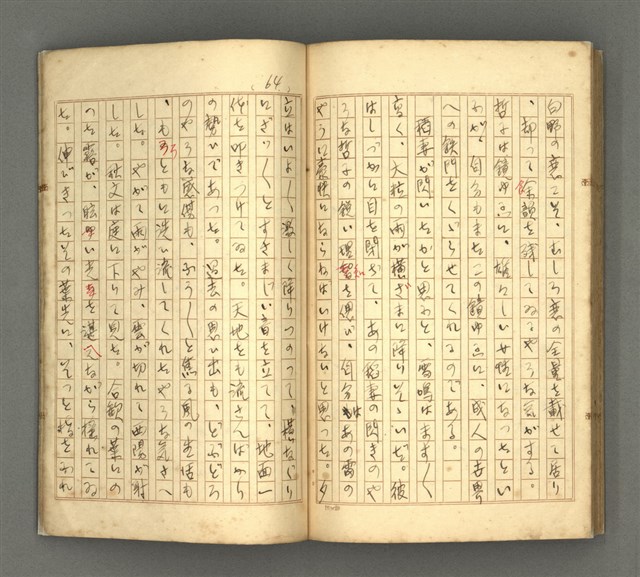 白野の恋こそ、むしろ恋の全量を載せて居り
、却って余韻を残してゐるやうな気がする。
哲子は鏡の中に、雄々しい女性になつたとい
わが自分もまたこの鏡の中に、成人の世界
への鉄門をくぐらせてくれるのである。
稲妻が閃いたなと思ふと、雷鳴はます〱
高く、大粒の雨が横ざまに降りそゝいだ。彼
はしづかに目を閉ぢて、あの稲妻の閃きのや
うな哲子の鋭い理智を思ひ、自分はあの雷の
やうに豪快にならねばいけないと思つた。夕
64
立はいよ〱激しく降りつのつて、横なぐり
にざつ〱とすさまじい音を立てて、地面一
体を叩きつけてゐた。天地をも流さんばかり
の勢ひであつた。過去の思ひ出も、どぶどろ
のやうな感傷も、ふう〱と焦る風の生活も
、もろともに洗ひ流してくれたやうな気さへ
した。やがて雨がやみ、雲が切れて西陽が射
した。秋文は庭に下りて見た。合歓の葉にの
つた露が、眩ゆい光を湛へながら揺れてゐ
た。伸びきつたその葉先に、そつと指をふれ